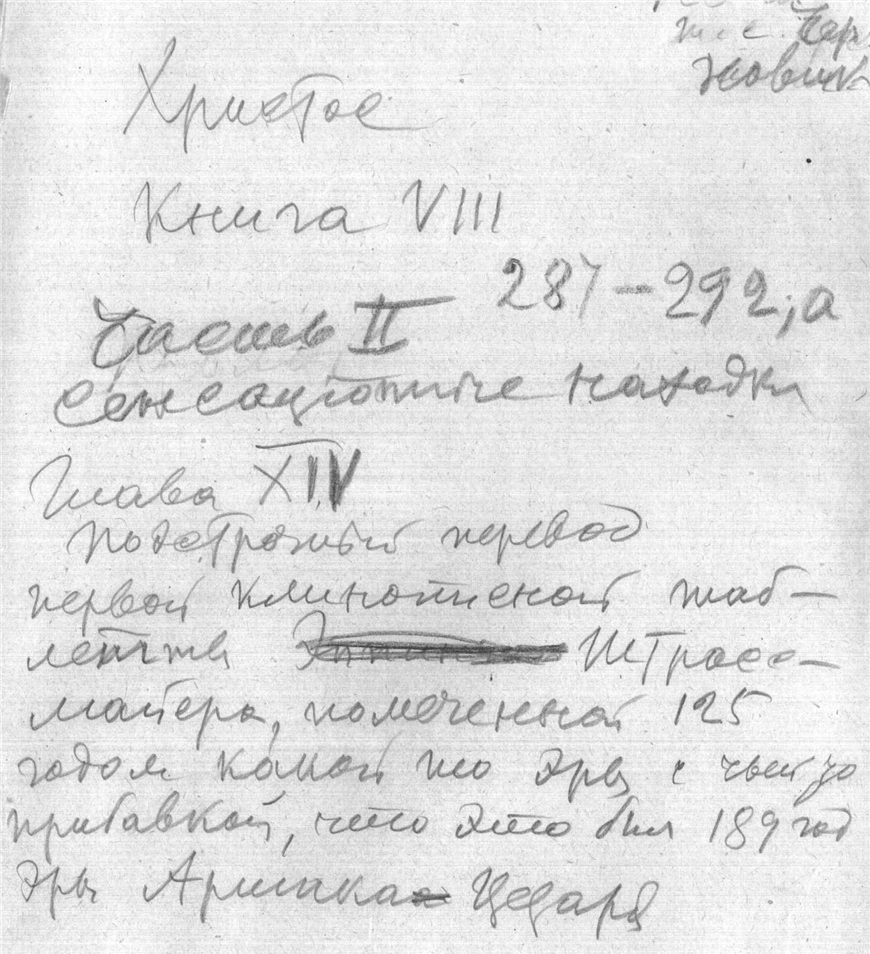 т. е. Чар
Новик
Христос
Книга VIII
287–292, а
Часть II
Сенсационные находки
Глава XIV
Подстрочный перевод
первой клинописной таб–
летки Штрасс–
майера, помеченной 125
годом какой то эры с чьей то
прибавкой, что это был 189 год
эры Аршака Цезаря